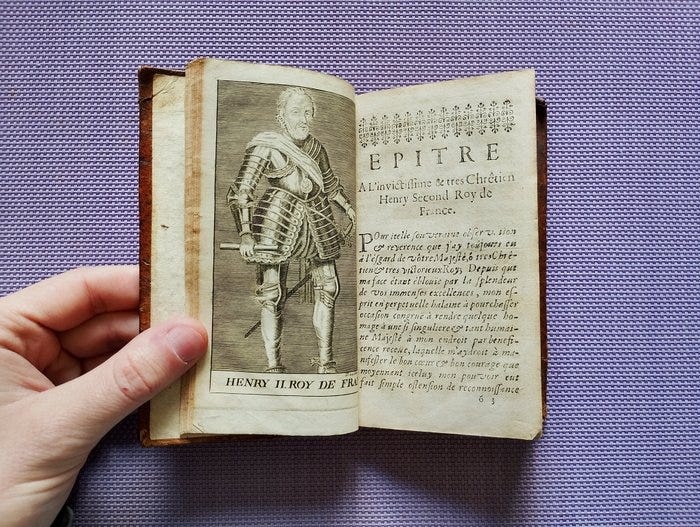 HENRY II. ROY DE FRA
EPITRE
A L'invictissime & tres Chrêtien
Henry Second Roy de
France.
POur icelle souveraine observation
& reverence que j'ay toujours eu
à l'ésgard de vôtre Majesté, ô tres Chrê-
tien & tres victorieux Roy, Depuis que
ma face étant éblouie par la splendeur
de vos immenses excellences, mon es-
prit en perpetuelle halaine à pourchasser
occasion congruë à rendre quelque ho-
mage à une si singuliere & tant humai-
ne Majesté à mon endroit par benefi-
cence receuë, laquelle m'aydroit à ma-
nifester le bon cœur & bon courage que
moyennant iceluy mon pouvoir eut
fait simple ostension de reconnoissance
6 3